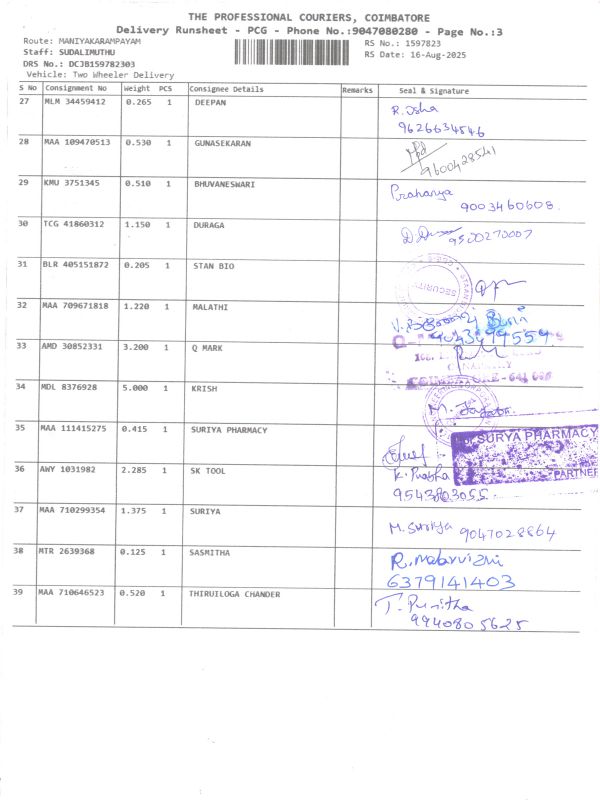 THE PROFESSIONAL COURIERS, COIMBATORE
Delivery Runsheet - PCG - Phone No.:9047080280 - Page No.:3
Route: MANIYAKARAMPAYAM RS No.: 1597823
Staff: SUDALIMUTHU RS Date: 16-Aug-2025
DRS No.: DCJB159782303
Vehicle: Two Wheeler Delivery
S No Consignment No Weight PCS Consignee Details Remarks Seal & Signature
27 MLM 34459412 0.265 1 DEEPAN R. Isha
9626634546
28 MAA 109470513 0.530 1 GUNASEKARAN
9600428541
29 KMU 3751345 0.510 1 BHUVANESWARI Praharya
9003460608
30 TCG 41860312 1.150 1 DURAGA 9500270007
31 BLR 405151872 0.205 1 STAN BIO SECURITY
32 MAA 709671818 1.220 1 MALATHI
9043499559
33 AMD 30852331 3.200 1 Q MARK
34 MDL 8376928 5.000 1 KRISH M.
35 MAA 111415275 0.415 1 SURIYA PHARMACY SURYA PHARMACY
36 AWY 1031982 2.285 1 SK TOOL K. Prabha PARTNER
9543803055
37 MAA 710299354 1.375 1 SURIYA M. Suriya 9047028864
38 MTR 2639368 0.125 1 SASMITHA R. Malarvizhi
6379141403
39 MAA 710646523 0.520 1 THIRUILOGA CHANDER T. Punitha
9940805625